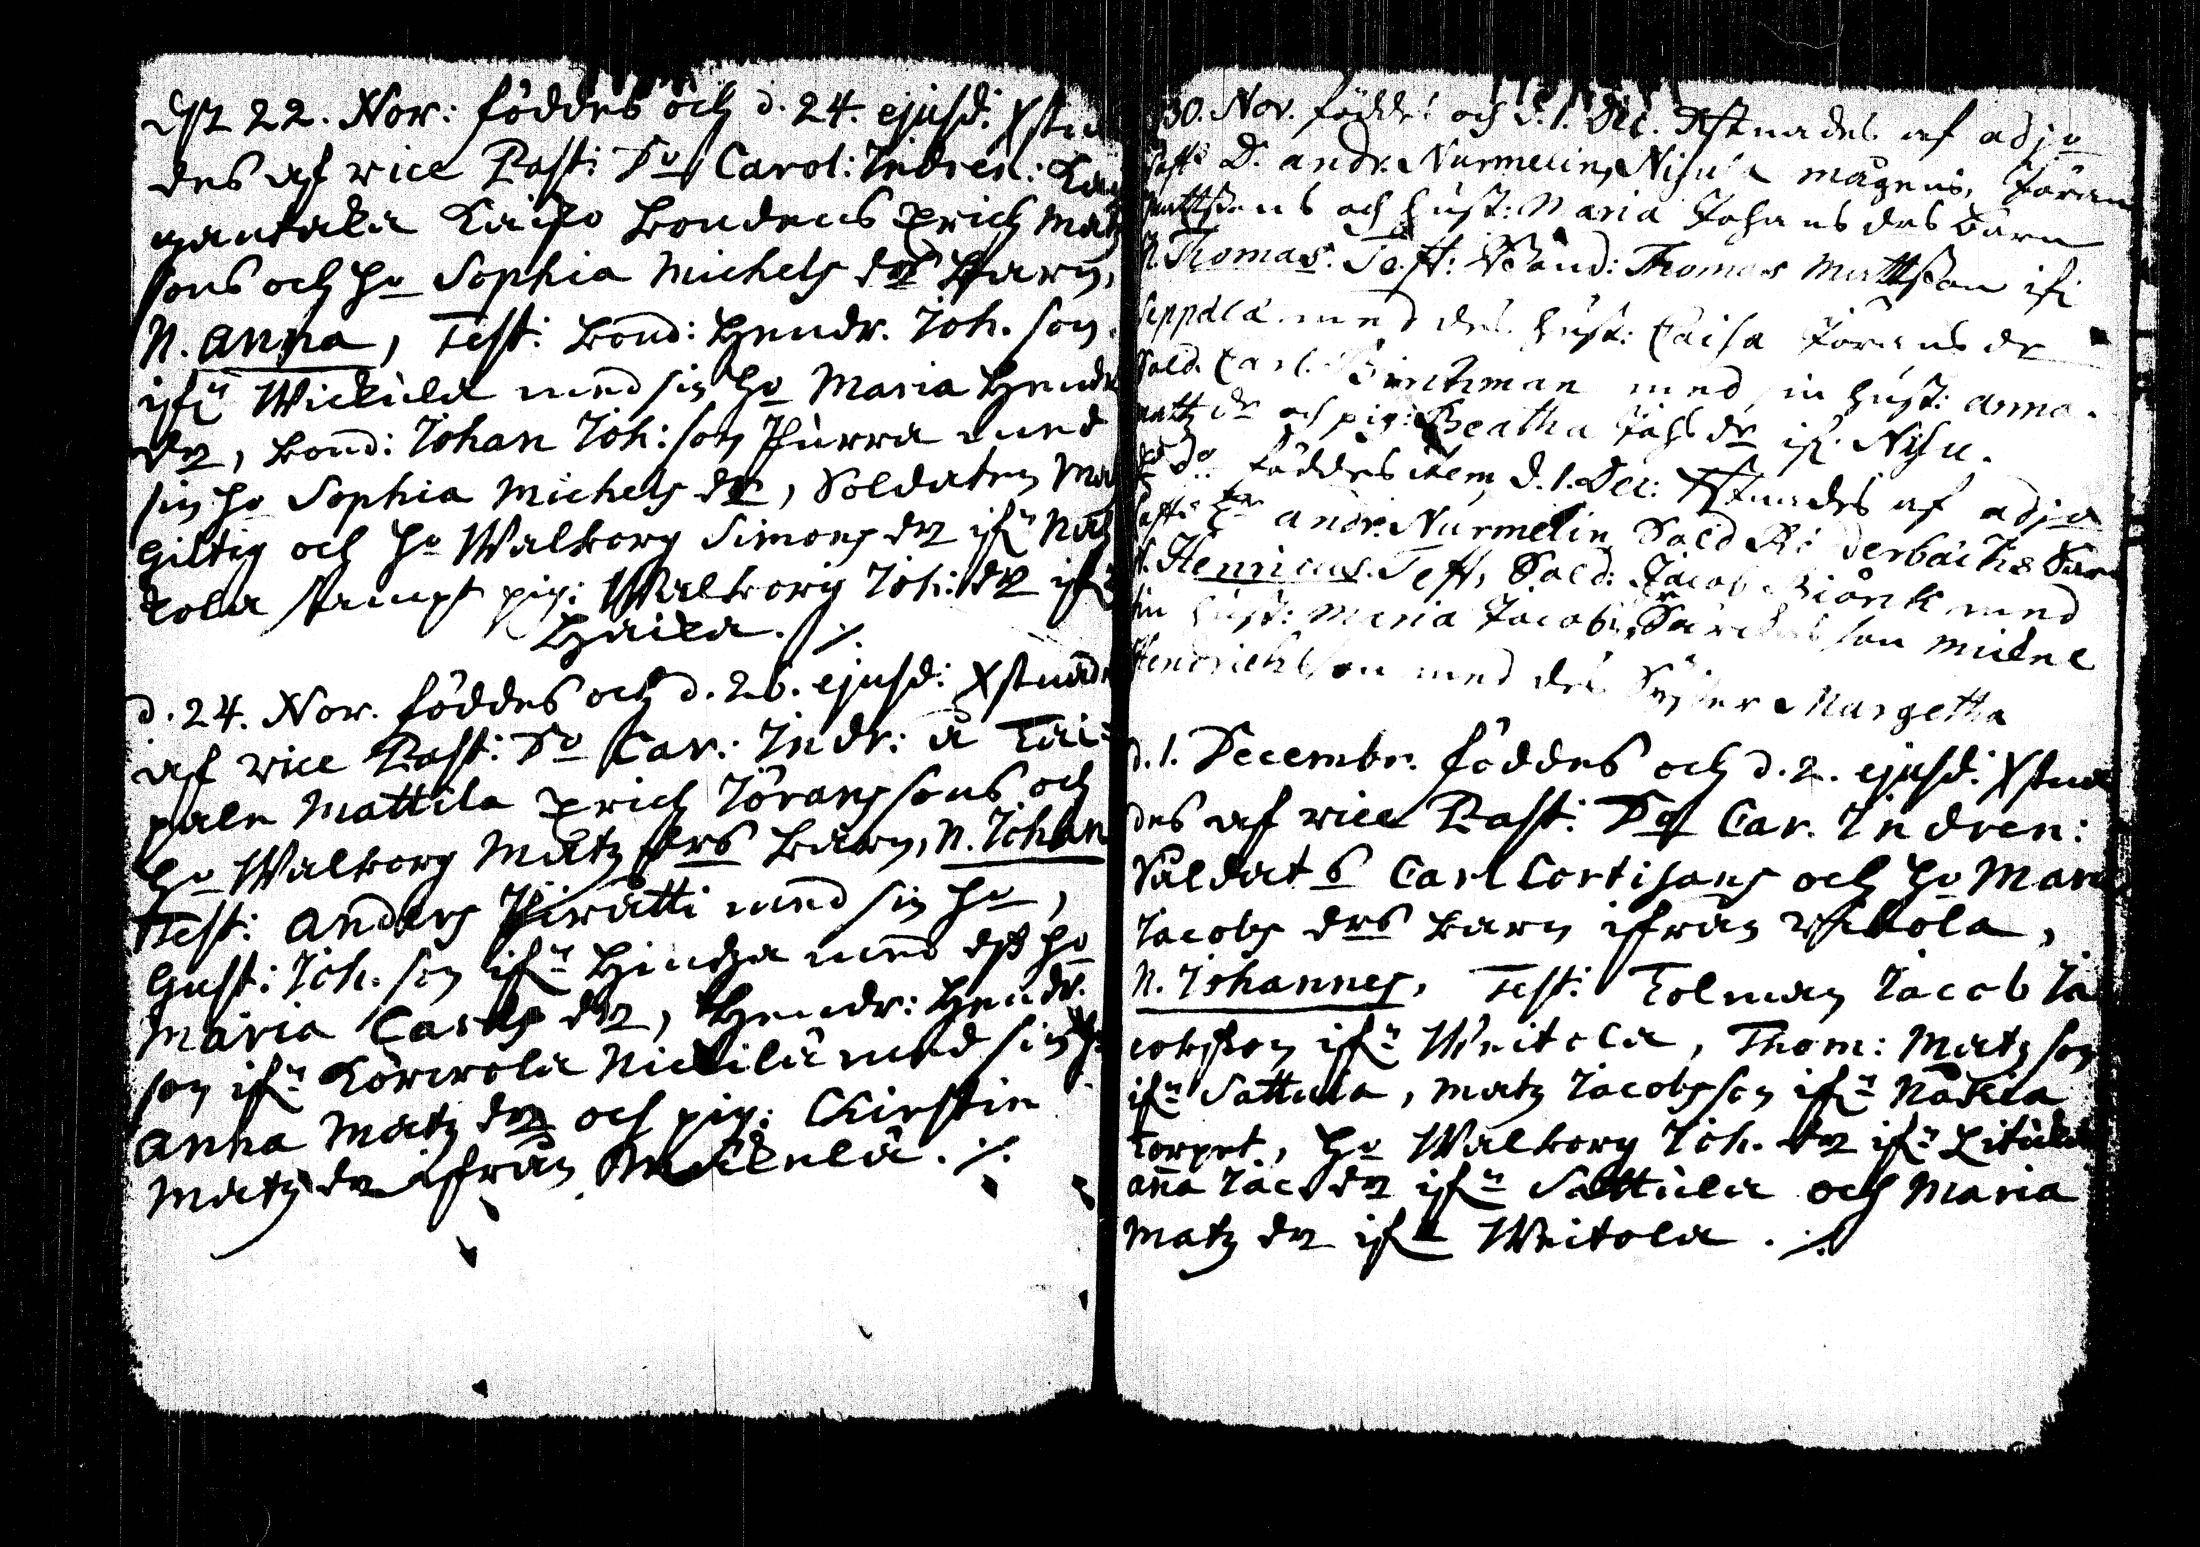 d. 22. Nov: föddes och d. 24. ejusd: Xstna
des af vice Past: Do Carol: Indren:
Kaifo Bondens Erich Matz
sons och Ho Sophia Michels dr Barn,
N. Anna, Test: Bond: Hendr. Joh. son
ifrn Wickila med sin Ho Maria Hendr
dr, Bond: Johan Joh: son Purra med
sin Ho Sophia Michels dr, Soldaten
Giltig och Ho Walborg Simons dr ifrn
kola sampt pig: Walborg Joh: dr ifrn
Haila. ./.
d. 24. Nov. föddes och d. 26. ejusd: Xstnades
af vice Past: Do Car: Indr: a
Mattila Erich Jörans sons och
Ho Walborg Matz drs Barn, N. Johan
Test: Anders med sin Ho,
Gust: Joh. son ifrn med dess Ho
Maria Carls dr, Hendr: Hendr.
son ifrn med sin Ho
Anna Matz dr och pig: Chirstin
Matz dr ifrån ./.
30. Nov. föddes och d. 1. Dec. Xstnades af adj:
Past: D. Andr. Nurmelin, Nisula mågens, Jöran
Mattsons och Hust: Maria Johans drs Barn
N. Thomas. Test: Bond: Thomas Mattson ifr
Seppälä med des Hust: Caisa Jörans dr
Sold. Carl med sin Hust: Anna
Matz dr och pig: Beatha Joh dr ifr. Nisu.
do föddes item, d. 1. Dec: Xstnades af adj:
Past: Andr. Nurmelin Sold Barn
N. Henricus. Test, Sold: Jacob Biörk med
sin Hust: Maria Jacobs son
Hendrichsson med des Syster Margetha
d. 1. Decembr. föddes och d. 2. ejusd: Xstna
des af vice Past: Do Car. Indren:
Soldat s Carl Cortisans och Ho Maria
Jacobs drs Barn ifrån
N. Johannes, Test: Tolman Jacob Ja
cobsson ifrn Weitola, Thom: Matz son
ifrn Sattula, Matz Jacobs son ifrn
Torpet, Ho Walborg Joh. dr ifrn
Anna Jac. dr ifrn Sattula och Maria
Matz dr ifrn Weitola. ./.